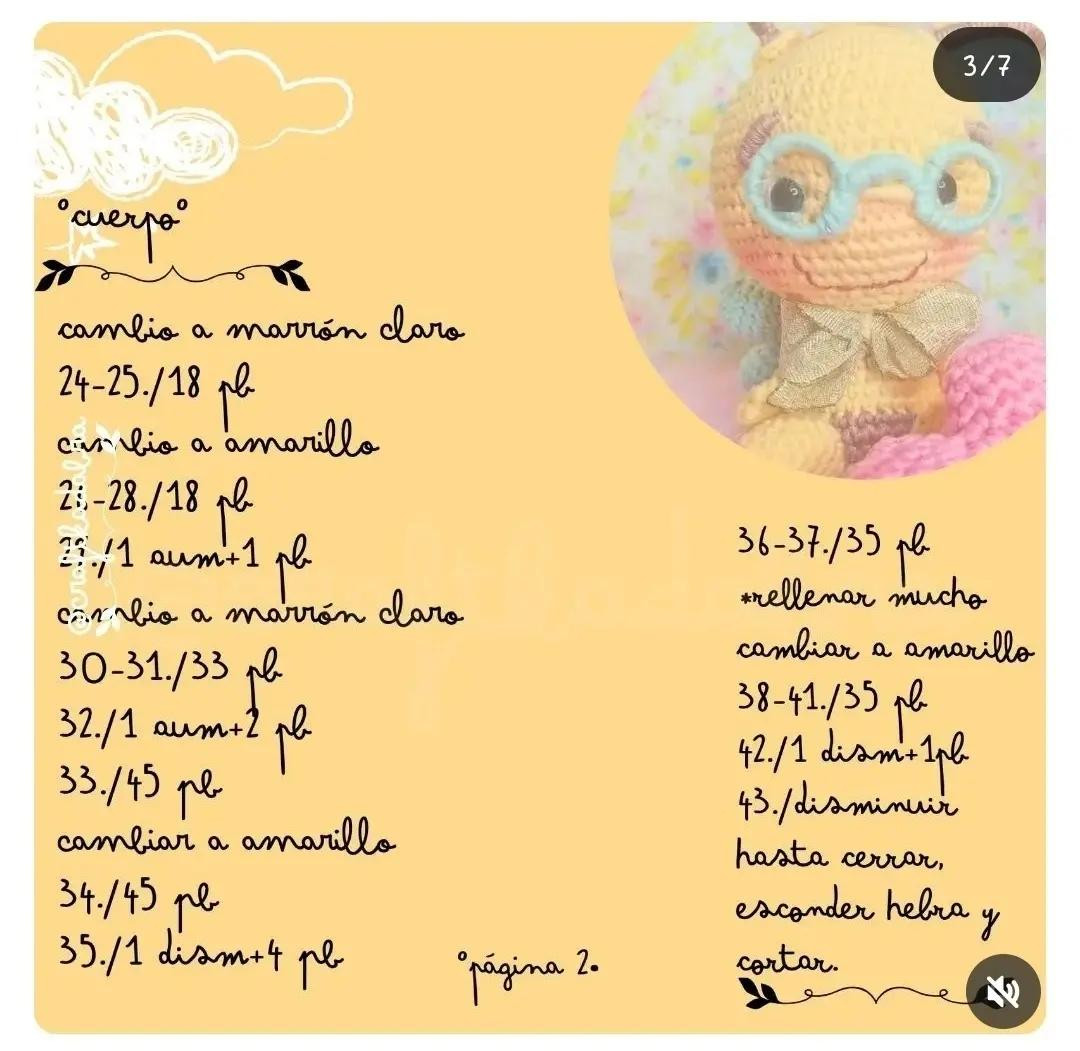 3/7
°cuerpo°
cambio a marrón claro
24-25./18 pb
cambio a amarillo
-28./18 pb
./1 aum+1 pb
cambio a marrón claro
30-31./33 pb
32./1 aum+2 pb
33./45 pb
cambiar a amarillo
34./45 pb
35./1 dism+4 pb
°página 2.
36-37./35 pb
*rellenar mucho
cambiar a amarillo
38-41./35 pb
42./1 dism+1pb
43./disminuir
hasta cerrar,
esconder hebra y
cortar.